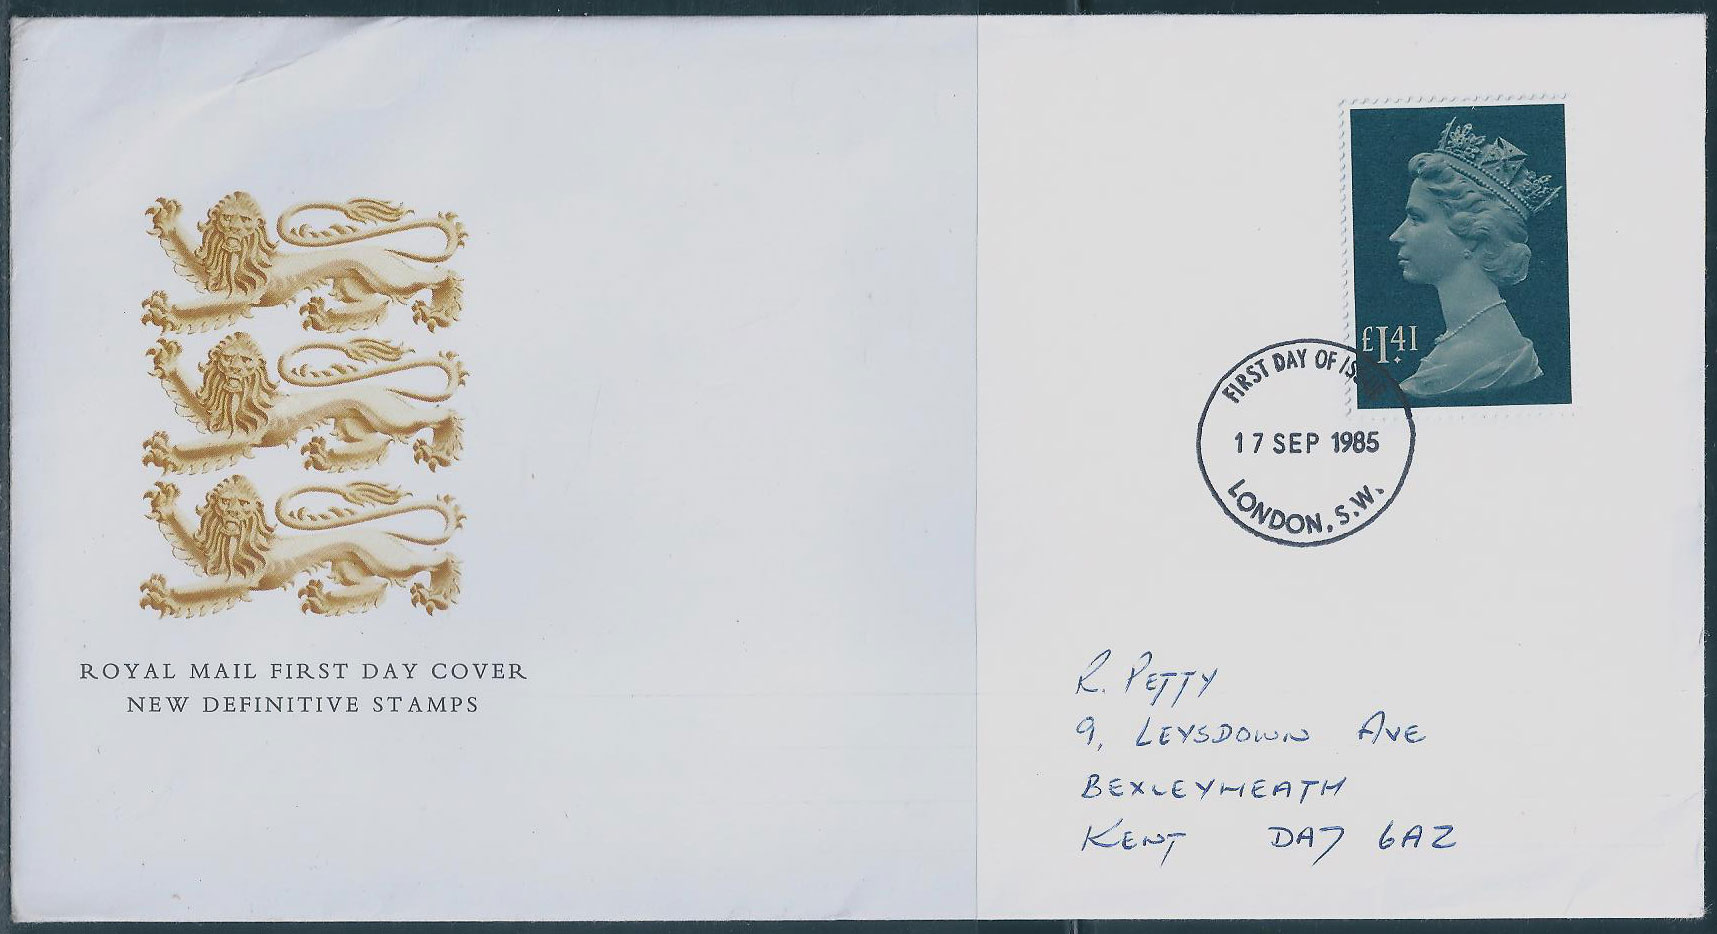 ROYAL MAIL FIRST DAY COVER
NEW DEFINITIVE STAMPS
£1.41
FIRST DAY OF ISSUE
17 SEP 1985
LONDON. S.W.
R. PETTY
9, LEYSDOWN AVE
BEXLEYHEATH
KENT DA7 6AZ